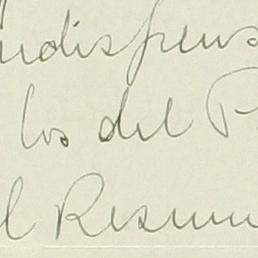 indispens
los del P
el Resum